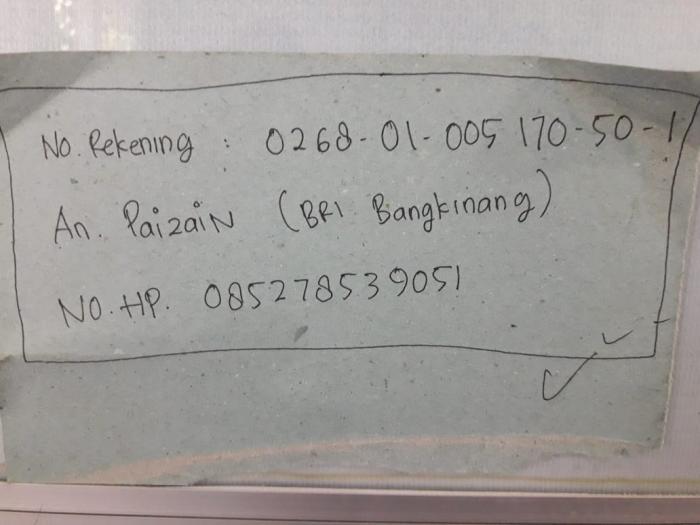 No. Rekening : 0268-01-005170-50-1
An. Paizain (BRI Bangkinang)
NO. HP. 085278539051